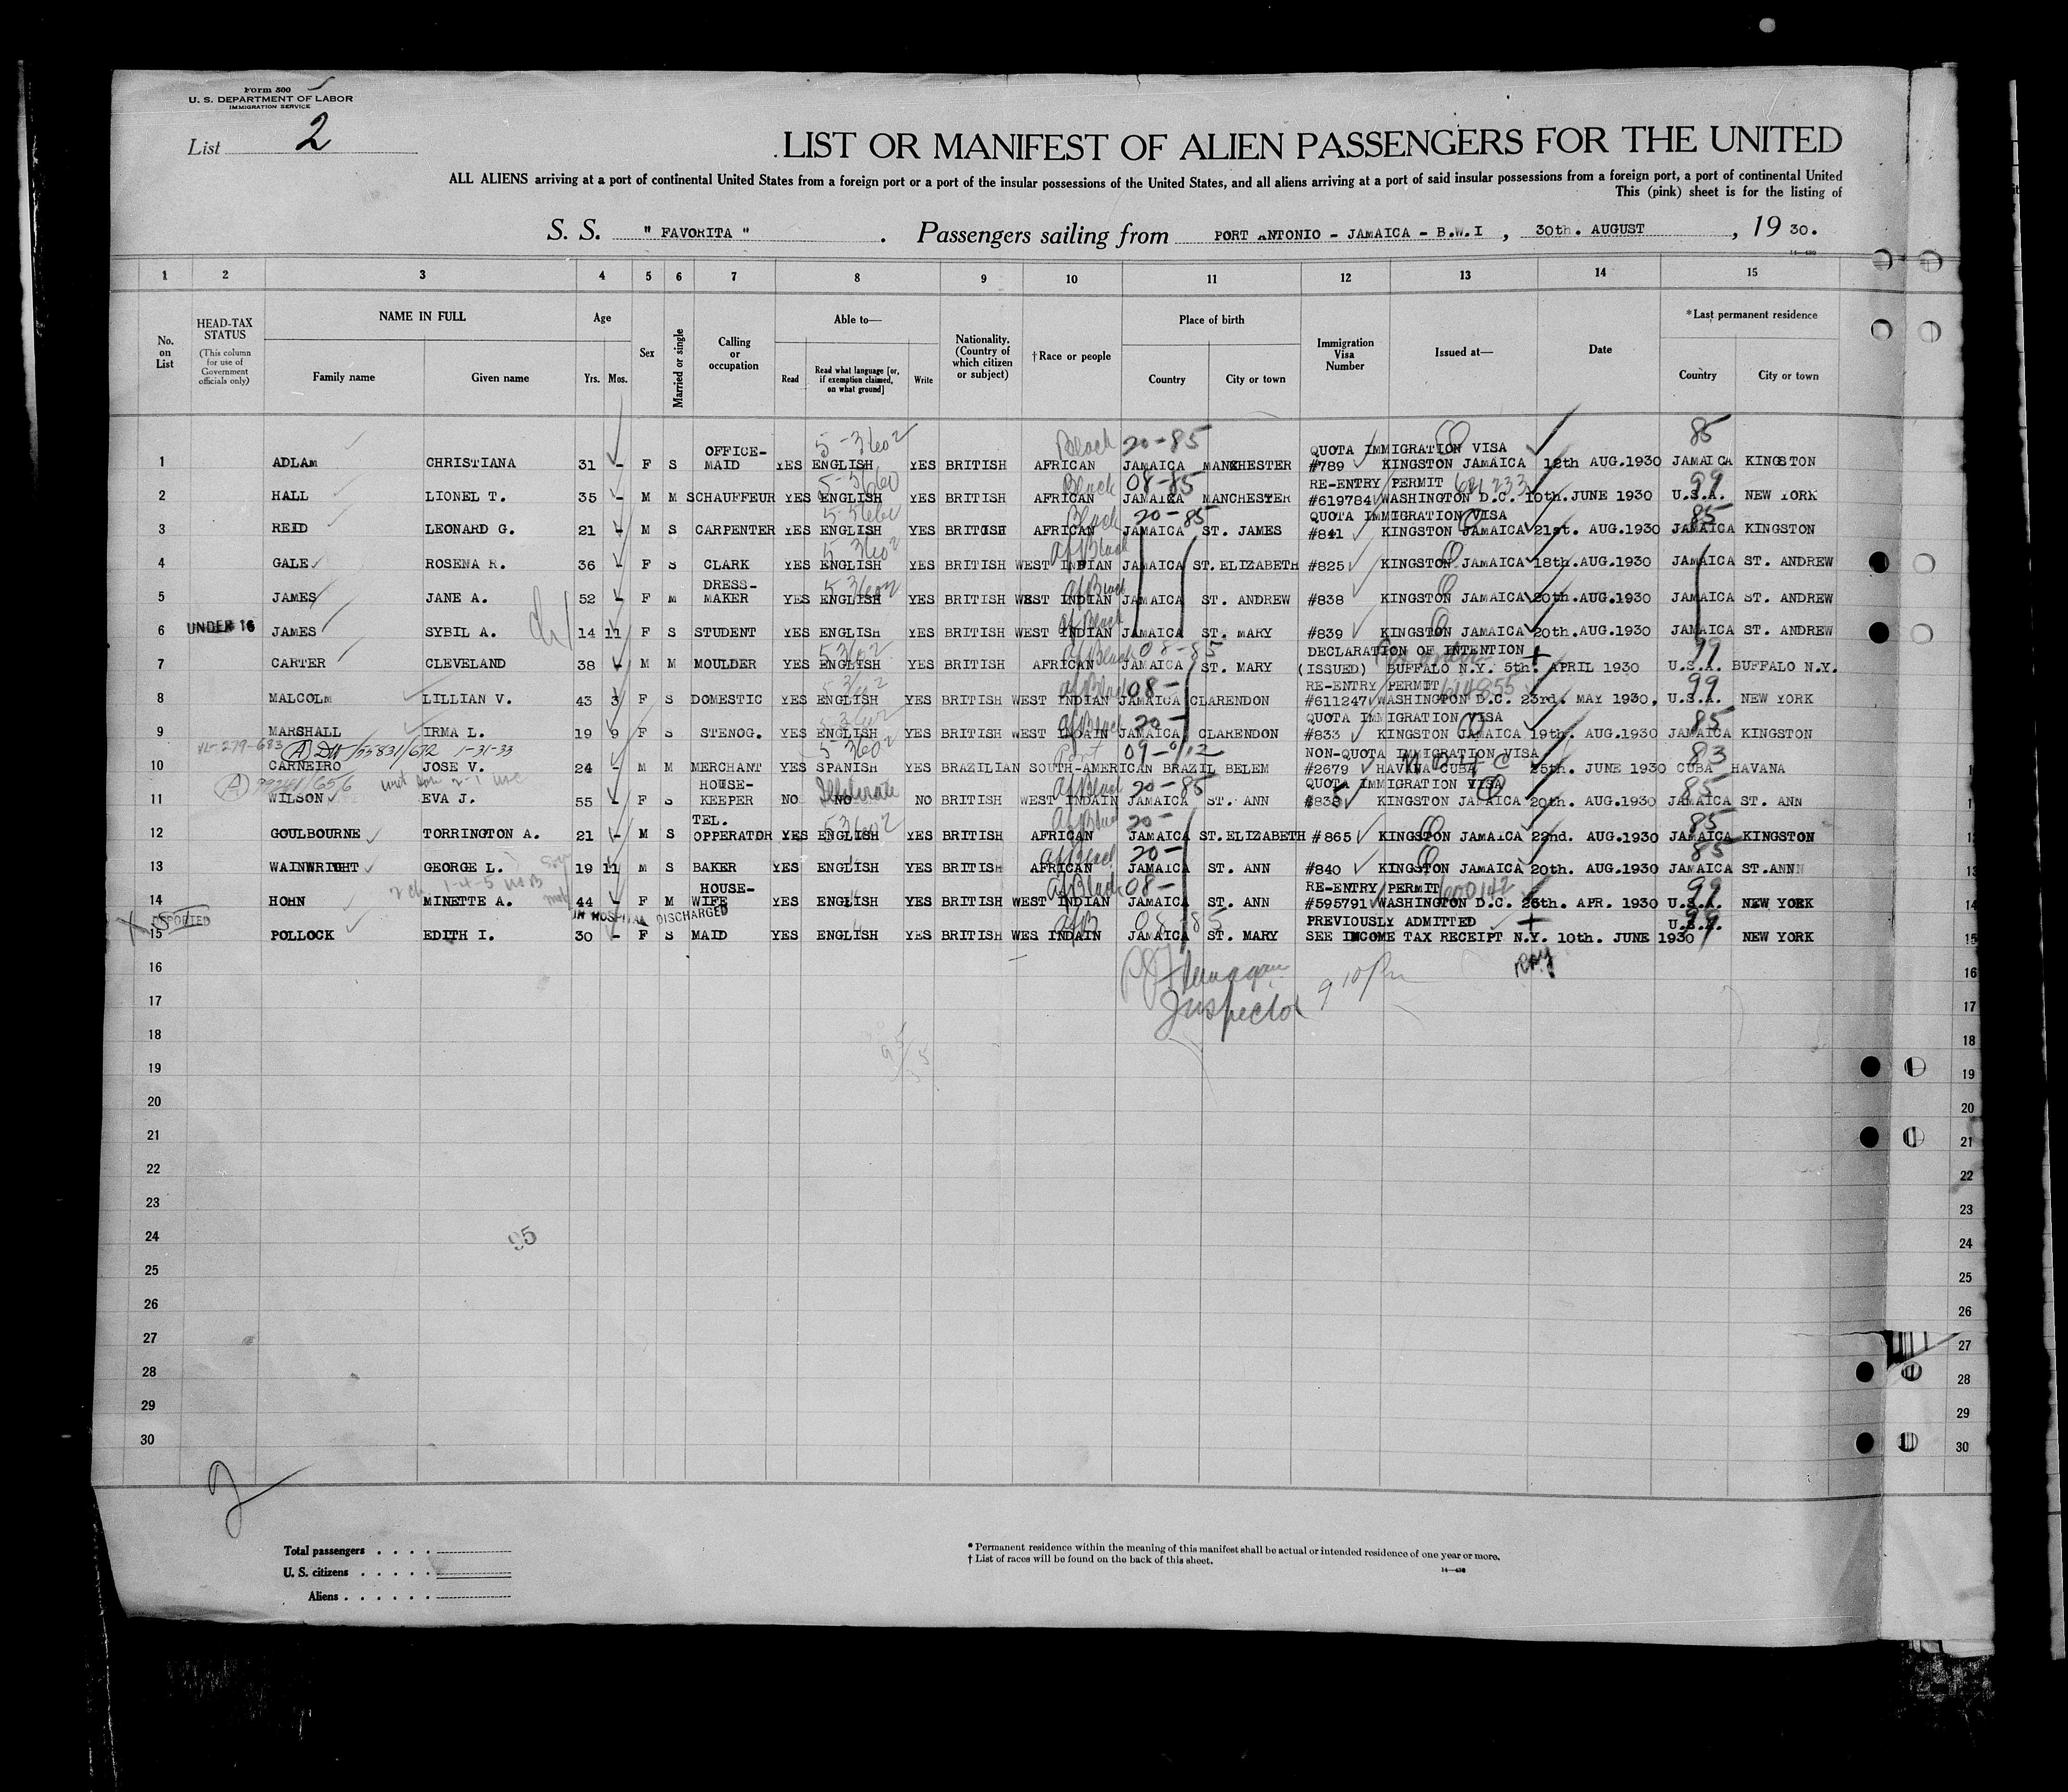 Form 500
U. S. DEPARTMENT OF LABOR
IMMIGRATION SERVICE
List 2
LIST OR MANIFEST OF ALIEN PASSENGERS FOR THE UNITED
ALL ALIENS arriving at a port of continental United States from a foreign port or a port of the insular possessions of the United States, and all aliens arriving at a port of said insular possessions from a foreign port, a port of continental United
This (pink) sheet is for the listing of
S. S. " FAVORITA " . Passengers sailing from PORT ANTONIO - JAMAICA - B.W.I , 30th. AUGUST , 19 30.
1 2 3 4 5 6 7 8 9 10 11 12 13 14 15
No. on List
HEAD-TAX STATUS
(This column for use of Government officials only)
NAME IN FULL
Family name Given name
Age
Yrs. Mos.
Sex
Married or single
Calling or occupation
Able to—
Read
Read what language [or, if exemption claimed, on what ground]
Write
Nationality. (Country of which citizen or subject)
†Race or people
Place of birth
Country City or town
Immigration Visa Number
Issued at—
Date
*Last permanent residence
Country City or town
5-3602 Black 20-85 85
OFFICE- QUOTA IMMIGRATION VISA
1 ADLAM CHRISTIANA 31 - F S MAID YES ENGLISH YES BRITISH AFRICAN JAMAICA MANCHESTER #789 KINGSTON JAMAICA 12th AUG.1930 JAMAICA KINGSTON
Black 08-85 RE-ENTRY PERMIT 99
2 HALL LIONEL T. 35 - M M SCHAUFFEUR YES ENGLISH YES BRITISH AFRICAN JAMAICA MANCHESTER #619784 WASHINGTON D.C. 10th.JUNE 1930 U.S.A. NEW YORK
Black 20-85 QUOTA IMMIGRATION VISA 85
3 REID LEONARD G. 21 - M S CARPENTER YES ENGLISH YES BRITISH AFRICAN JAMAICA ST. JAMES #841 KINGSTON JAMAICA 21st. AUG.1930 JAMAICA KINGSTON
5-3602 Af Black
4 GALE ROSENA R. 36 - F S CLARK YES ENGLISH YES BRITISH WEST INDIAN JAMAICA ST.ELIZABETH #825 KINGSTON JAMAICA 18th.AUG.1930 JAMAICA ST. ANDREW
DRESS- 5-3602 Af Black
5 JAMES JANE A. 52 - F M MAKER YES ENGLISH YES BRITISH WEST INDIAN JAMAICA ST. ANDREW #838 KINGSTON JAMAICA 20th.AUG.1930 JAMAICA ST. ANDREW
Af Black
6 UNDER 16 JAMES SYBIL A. 14 11 F S STUDENT YES ENGLISH YES BRITISH WEST INDIAN JAMAICA ST. MARY #839 KINGSTON JAMAICA 20th.AUG.1930 JAMAICA ST. ANDREW
53602 Af Black 08-85 DECLARATION OF INTENTION 99
7 CARTER CLEVELAND 38 - M M MOULDER YES ENGLISH YES BRITISH AFRICAN JAMAICA ST. MARY (ISSUED) BUFFALO N.Y. 5th. APRIL 1930 U.S.A. BUFFALO N.Y.
Af Black 08- RE-ENTRY PERMIT 614855 99
8 MALCOLM LILLIAN V. 43 3 F S DOMESTIC YES ENGLISH YES BRITISH WEST INDIAN JAMAICA CLARENDON #611247 WASHINGTON D.C. 23rd. MAY 1930, U.S.A. NEW YORK
5-3602 Af Black 20- QUOTA IMMIGRATION VISA 85
9 MARSHALL IRMA L. 19 9 F S STENOG. YES ENGLISH YES BRITISH WEST INDAIN JAMAICA CLARENDON #833 KINGSTON JAMAICA 19th. AUG.1930 JAMAICA KINGSTON
55831/672 1-31-33 5-3602 Port NON-QUOTA IMMIGRATION VISA 83
10 CARNEIRO JOSE V. 24 - M M MERCHANT YES SPANISH YES BRAZILIAN SOUTH-AMERICAN BRAZIL BELEM #2679 HAVANA CUBA 25th. JUNE 1930 CUBA HAVANA
HOUSE- Illiterate Af Black 20-85 QUOTA IMMIGRATION VISA 85
11 WILSON EVA J. 55 - F S KEEPER NO NO NO BRITISH WEST INDAIN JAMAICA ST. ANN KINGSTON JAMAICA 20th. AUG.1930 JAMAICA ST. ANN
TEL. 53602 20- 85
12 GOULBOURNE TORRINGTON A. 21 - M S OPPERATOR YES ENGLISH YES BRITISH AFRICAN JAMAICA ST.ELIZABETH #865 KINGSTON JAMAICA 22nd. AUG.1930 JAMAICA KINGSTON
Af Black 20- 85
13 WAINWRIGHT GEORGE L. 19 11 M S BAKER YES ENGLISH YES BRITISH AFRICAN JAMAICA ST. ANN #840 KINGSTON JAMAICA 20th. AUG.1930 JAMAICA ST.ANN
HOUSE- Af Black 08- RE-ENTRY PERMIT 600142 99
14 HOHN MINETTE A. 44 - F M WIFE YES ENGLISH YES BRITISH WEST INDIAN JAMAICA ST. ANN #595791 WASHINGTON D.C. 26th. APR. 1930 U.S.A. NEW YORK 14
DEPORTED IN HOSPITAL DISCHARGED 08 85 PREVIOUSLY ADMITTED U.S.A.
15 POLLOCK EDITH I. 30 - F S MAID YES ENGLISH YES BRITISH WES INDAIN JAMAICA ST. MARY SEE INCOME TAX RECEIPT N.Y. 10th. JUNE 1930 NEW YORK 15
16 16
Inspector
17 17
18 18
19 19
20 20
21 21
22 22
23 23
24 95 24
25 25
26 26
27 27
28 28
29 29
30 30
2
Total passengers . . . .
U. S. citizens . . . . .
Aliens . . . . . .
* Permanent residence within the meaning of this manifest shall be actual or intended residence of one year or more.
† List of races will be found on the back of this sheet.